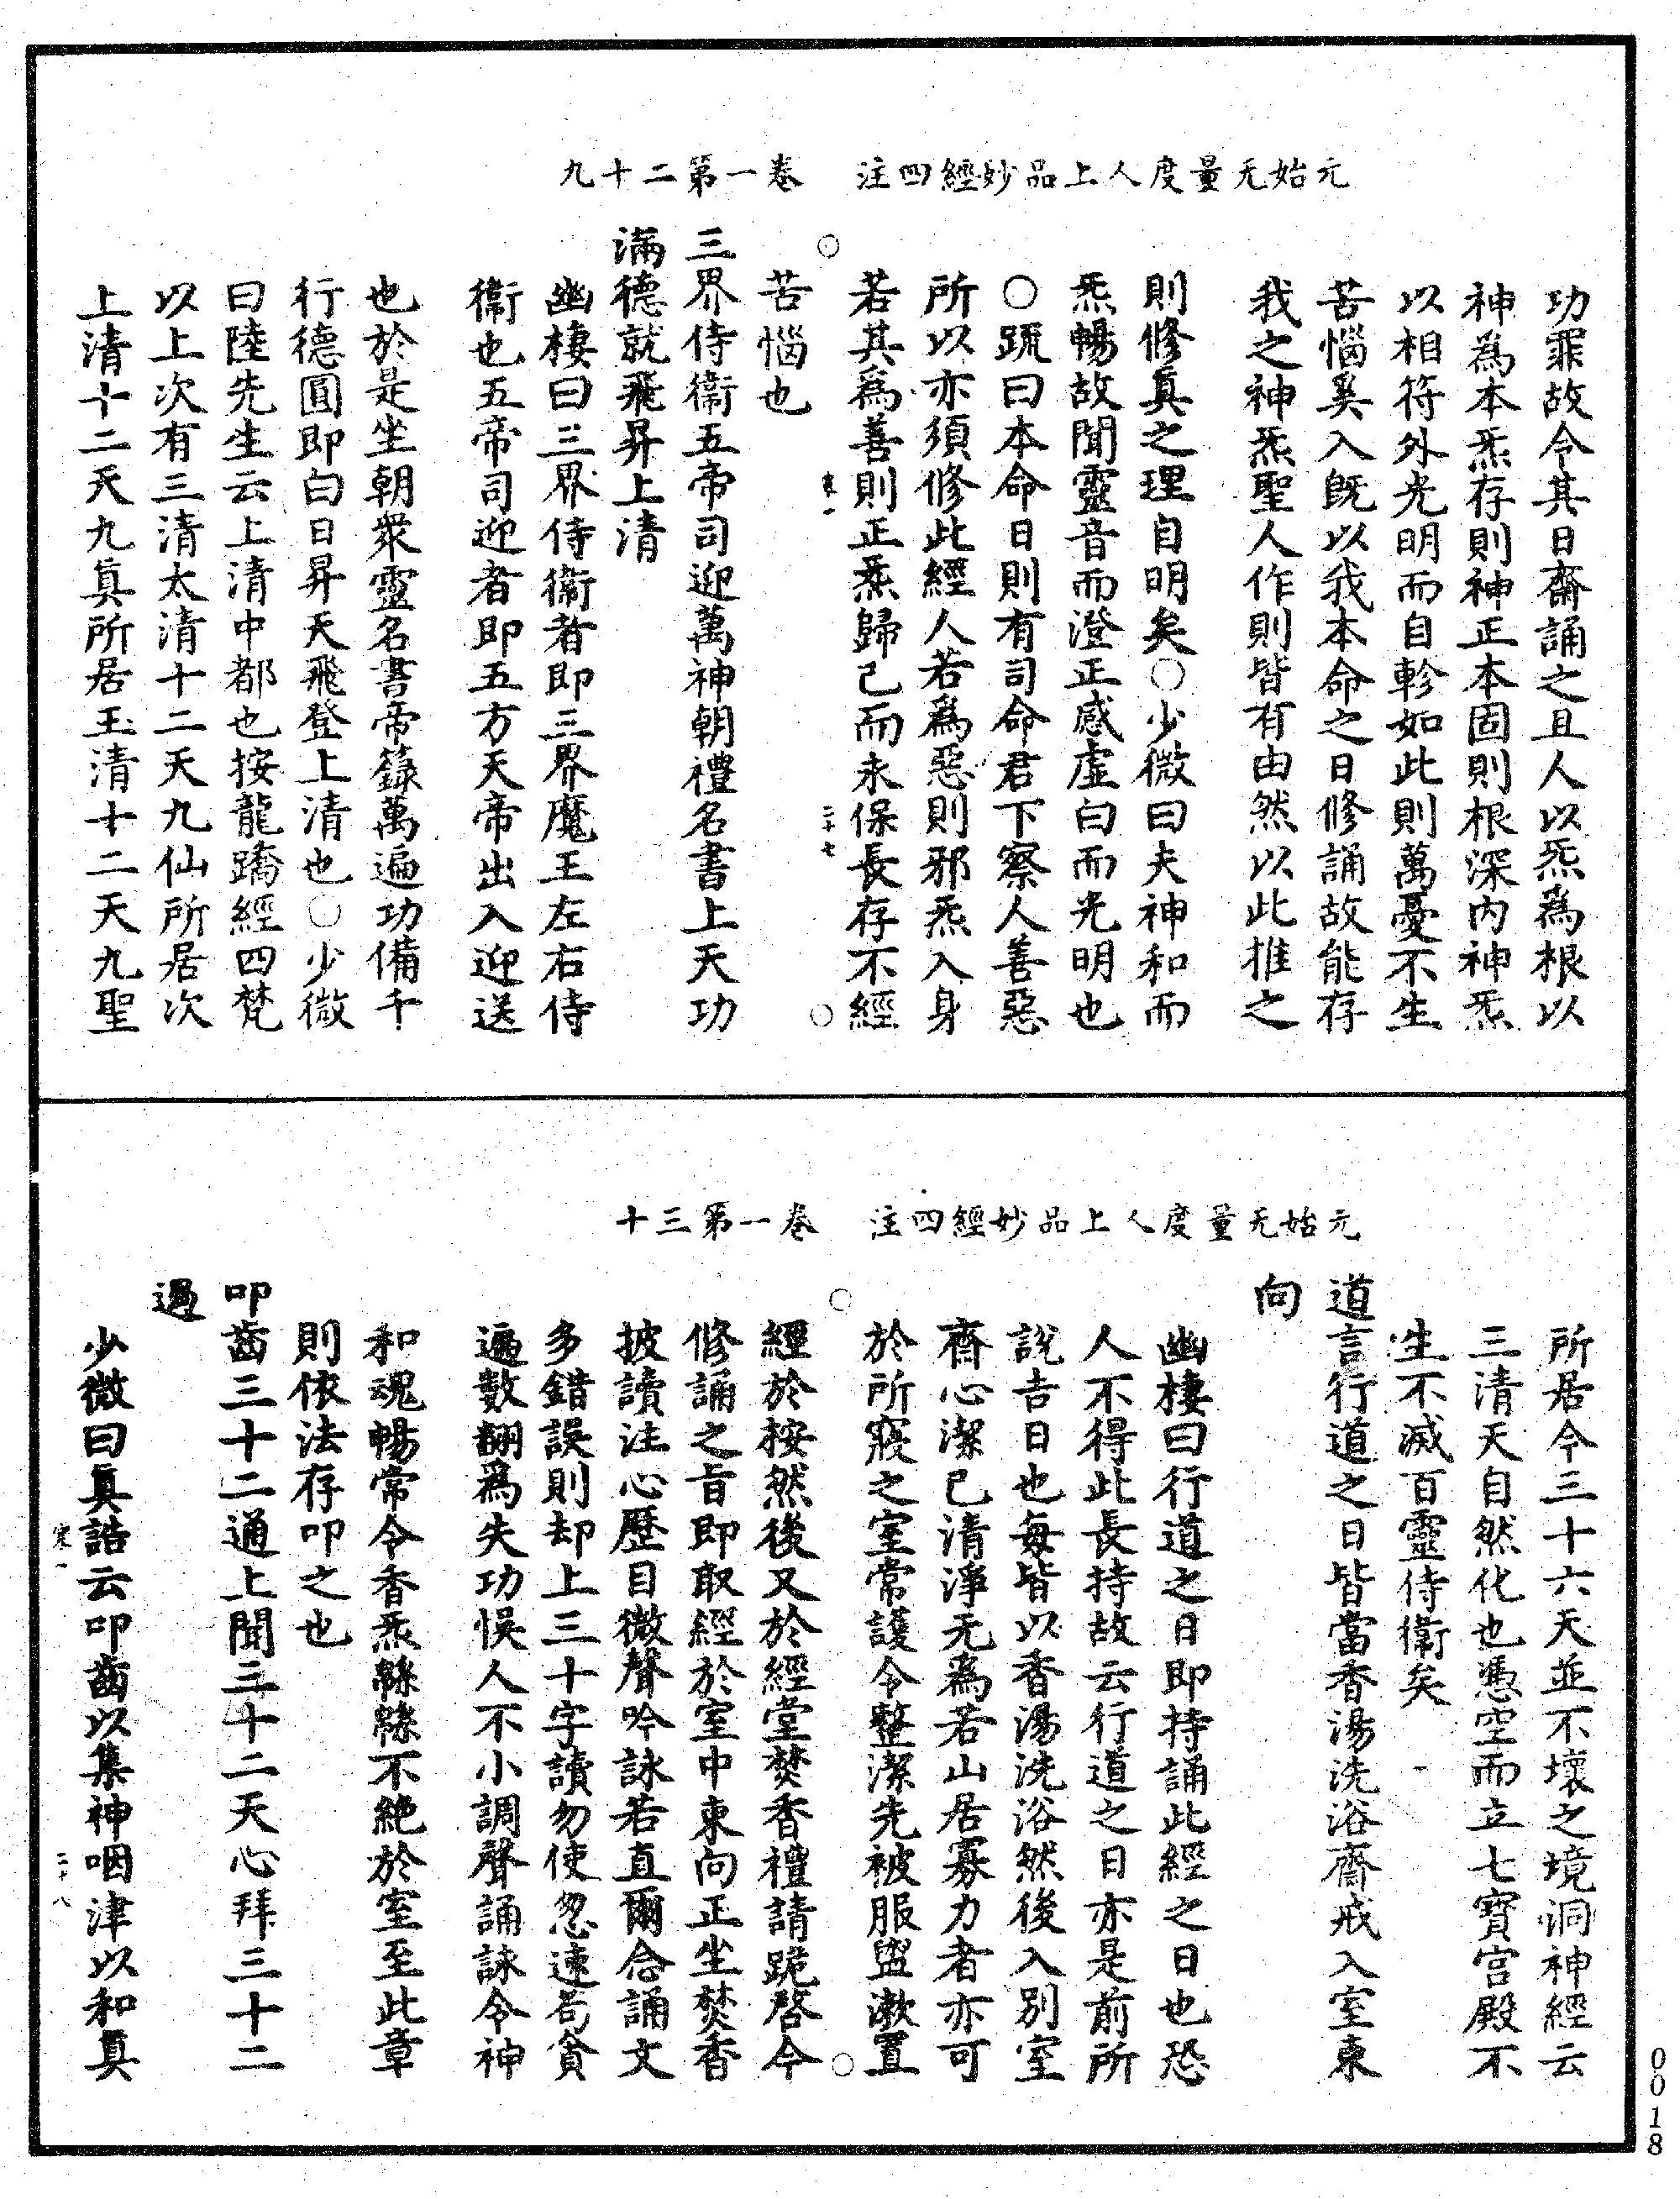 元始无量度人上品妙經四注　卷一第二十九
功罪故令其日齋誦之且人以炁為根以
神為本炁存則神正本固則根深内神炁
以相符外光明而自軫如此則萬憂不生
苦惱奚入旣以我本命之日修誦故能存
我之神炁聖人作則皆有由然以此推之
則修真之理自明矣○少微曰夫神和而
炁暢故聞靈音而澄正感虛白而光明也
○䟽曰本命日則有司命君下察人善惡
所以亦須修此經人若為惡則邪炁入身
若其為善則正炁歸己而永保長存不經
二十七
苦惱也
三界侍衛五帝司迎萬神朝禮名書上天功
滿德就飛昇上清
幽棲曰三界侍衛者即三界魔王左右侍
衛也五帝司迎者即五方天帝出入迎送
也於是坐朝衆靈名書帝籙萬遍功備千
行德圓即白日昇天飛登上清也○少微
曰陸先生云上清中都也按龍蹻經四梵
以上次有三清太清十二天九仙所居次
上清十二天九真所居玉清十二天九聖
元始无量度人上品妙經四注　卷一第三十
所居今三十六天並不壞之境洞神經云
三清天自然化也憑空而立七寶宮殿不
生不滅百靈侍衛矣
道言行道之日皆當香湯洗浴齋戒入室東
向
幽棲曰行道之日即持誦此經之日也恐
人不得此長持故云行道之日亦是前所
說吉日也每皆以香湯洗浴然後入別室
齋心潔己清淨无為若山居寡力者亦可
於所寢之室常護令整潔先被服盥漱置
經於按然後又於經堂焚香禮請跪啓今
修誦之旨即取經於室中東向正坐焚香
披讀注心歷目微聲吟詠若直爾念誦文
多錯誤則却上三十字讀勿使怱速苟貪
遍數翻為失功悞人不小調聲誦詠令神
和魂暢常令香炁緜緜不絕於室至此章
則依法存叩之也
叩齒三十二通上聞三十二天心拜三十二
過
少微曰真誥云叩齒以集神咽津以和真
寒一
二十八
0018